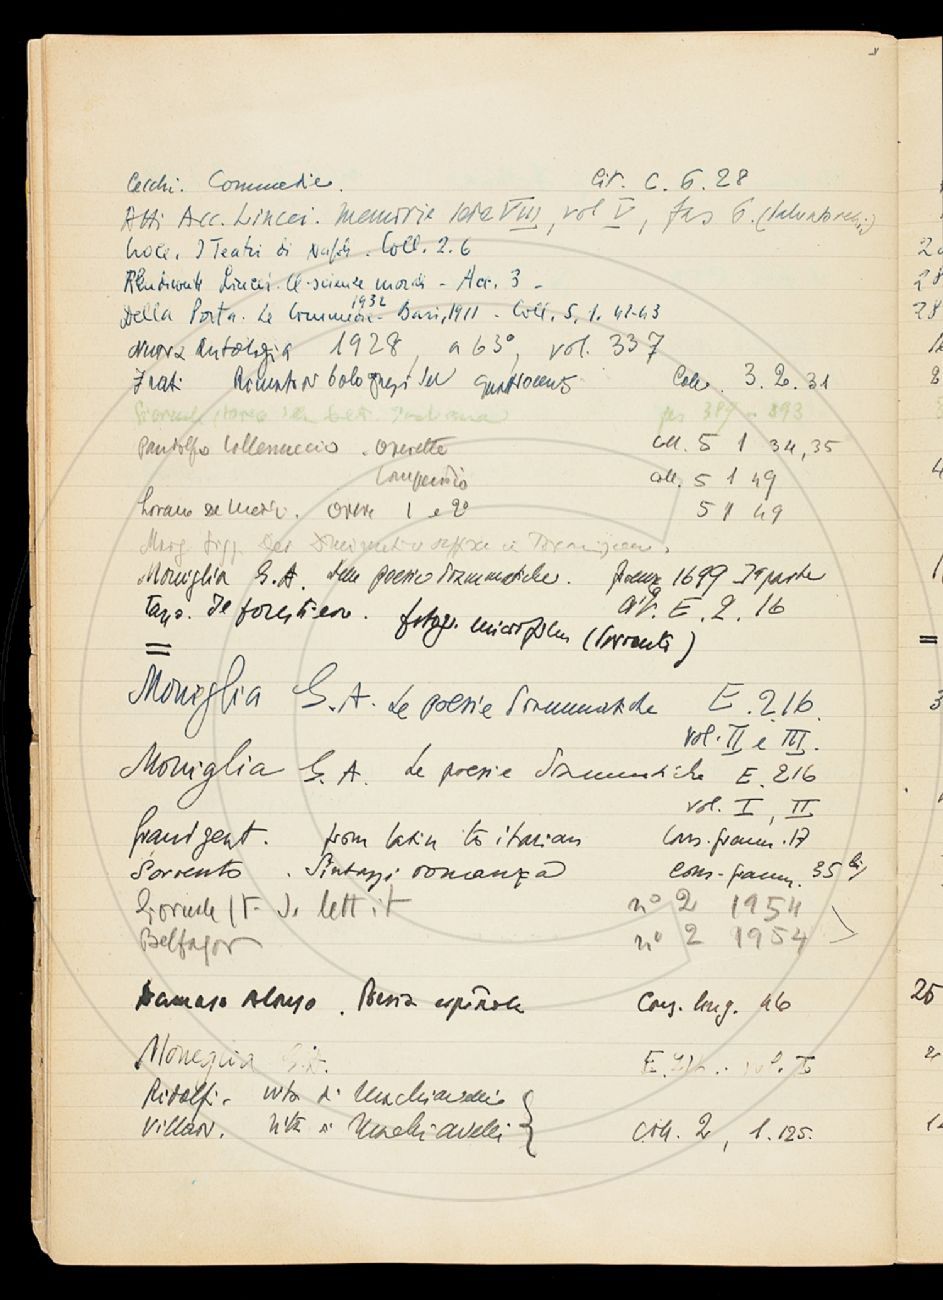 Cecchi. Commedie. Cit. C. 6. 28
Atti Acc. Lincei. Memorie serie VIII, vol V, fas 6.
Croce. I Teatri di Napoli. Coll. 2. 6
Rendiconti Lincei. Cl. scienze morali - Acc. 3 -
Della Porta. Le Commedie - Bari, 1911 - Coll. 5. 1. 42-43
1932
Nuova Antologia 1928, a 63°, vol. 337
Frati Rimatori bolognesi del quattrocento Coll. 3. 2. 31
Giornale storico della lett. Italiana fas 389 - 393
Pandolfo Collenuccio. Operette coll. 5 1 34, 35
Compendio coll. 5 1 49
Lorenzo de Medici. Opere 1 e 2° 5 1 49
Moniglia G. A. Delle poesie drammatiche. Firenze 1699 Iª parte
Tasso. Il forestiero. Cit. E. 2. 16
fotogr. microfilm (Sorrento)
=
Moniglia G. A. Le poesie drammatiche E. 2 16.
vol. II e III.
Moniglia G. A. Le poesie drammatiche E. 2 16
vol. I, II
Grandgent. From latin to italian Cons. gramm. 17
Sorrento. Sintassi romanza Cons. gramm. 35 bis
Giornale st. d. lett. it n° 2 1954
Belfagor n° 2 1954
Damaso Alonso. Poesia española Cons. ling. 46
Moneglia G. A. E. 216. vol. I
Ridolfi. Vita di Machiavelli
Villari. Vita di Machiavelli Coll. 2, 1. 125.